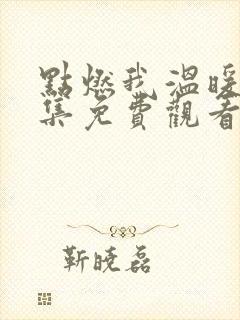 點燃我溫暖
集免費觀看
靳曉磊